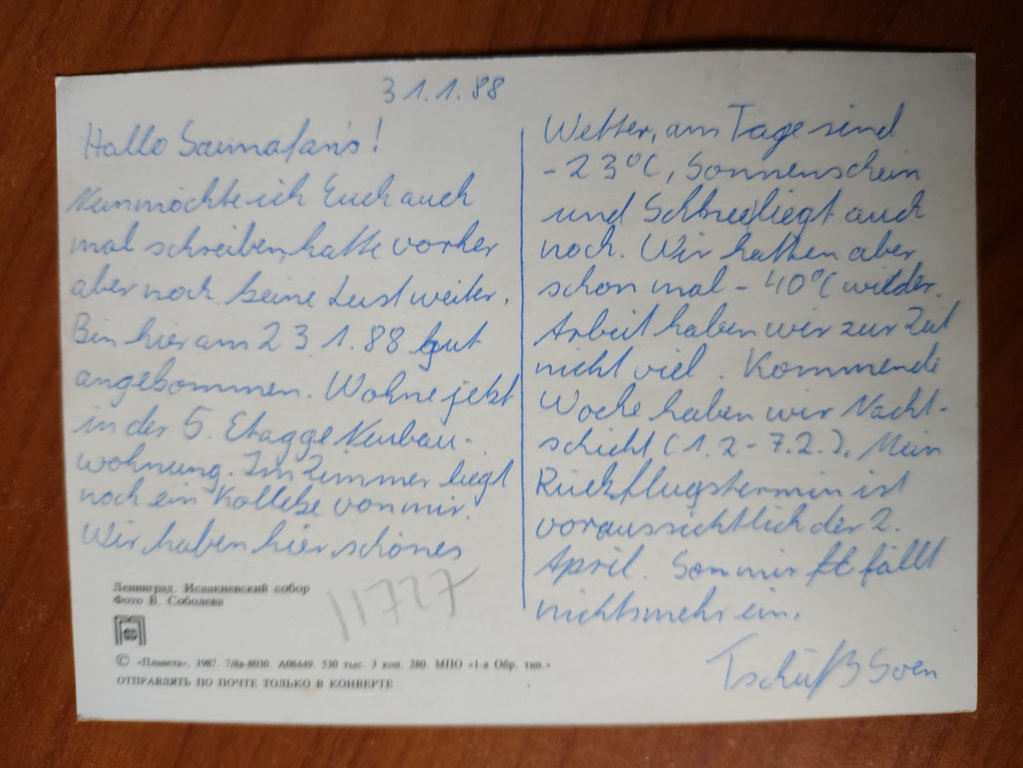 31.1.88
Hallo Saunafans!
Nun möchte ich Euch auch
mal schreiben, hatte vorher
aber noch keine Lust weiter.
Bin hier am 23 1.88 gut
angekommen. Wohne jetzt
in der 5. Etagge Neubau-
wohnung. Im Zimmer liegt
noch ein Kollege von mir.
Wir haben hier schönes
Wetter, am Tage sind
-23°C, Sonnenschein
und Schnee liegt auch
noch. Wir hatten aber
schon mal -40°C wieder.
Arbeit haben wir zur Zeit
nicht viel. Kommende
Woche haben wir Nacht-
schicht (1.2-7.2.). Mein
Rückflugstermin ist
voraussichtlich der 2.
April. So mir fällt
nichts mehr ein.
Tschüß Sven
11727
Ленинград. Исаакиевский собор
Фото В. Соболева
© «Планета», 1987. 7/8а-8030. А08449. 530 тыс. 3 коп. 280. МПО «1-я Обр. тип.»
ОТПРАВЛЯТЬ ПО ПОЧТЕ ТОЛЬКО В КОНВЕРТЕ